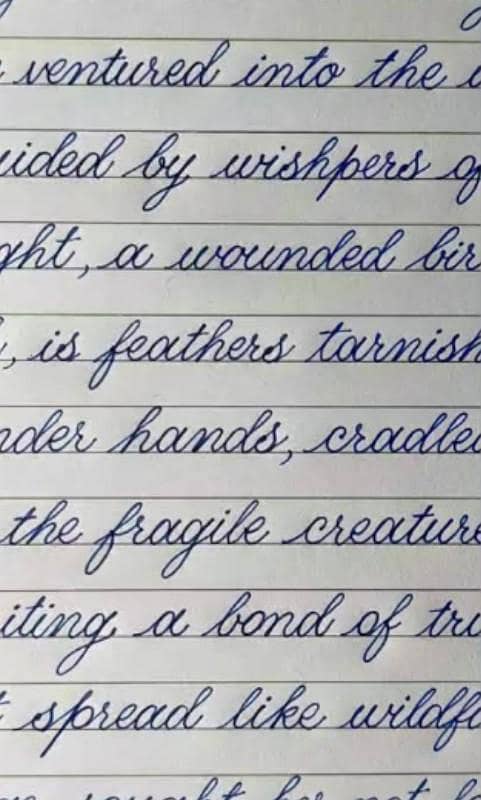 ventured into the
uided by wishpers of
ght, a wounded bir
, is feathers tarnish
nder hands, cradled
the fragile creature
iting a bond of tru
t spread like wildfl